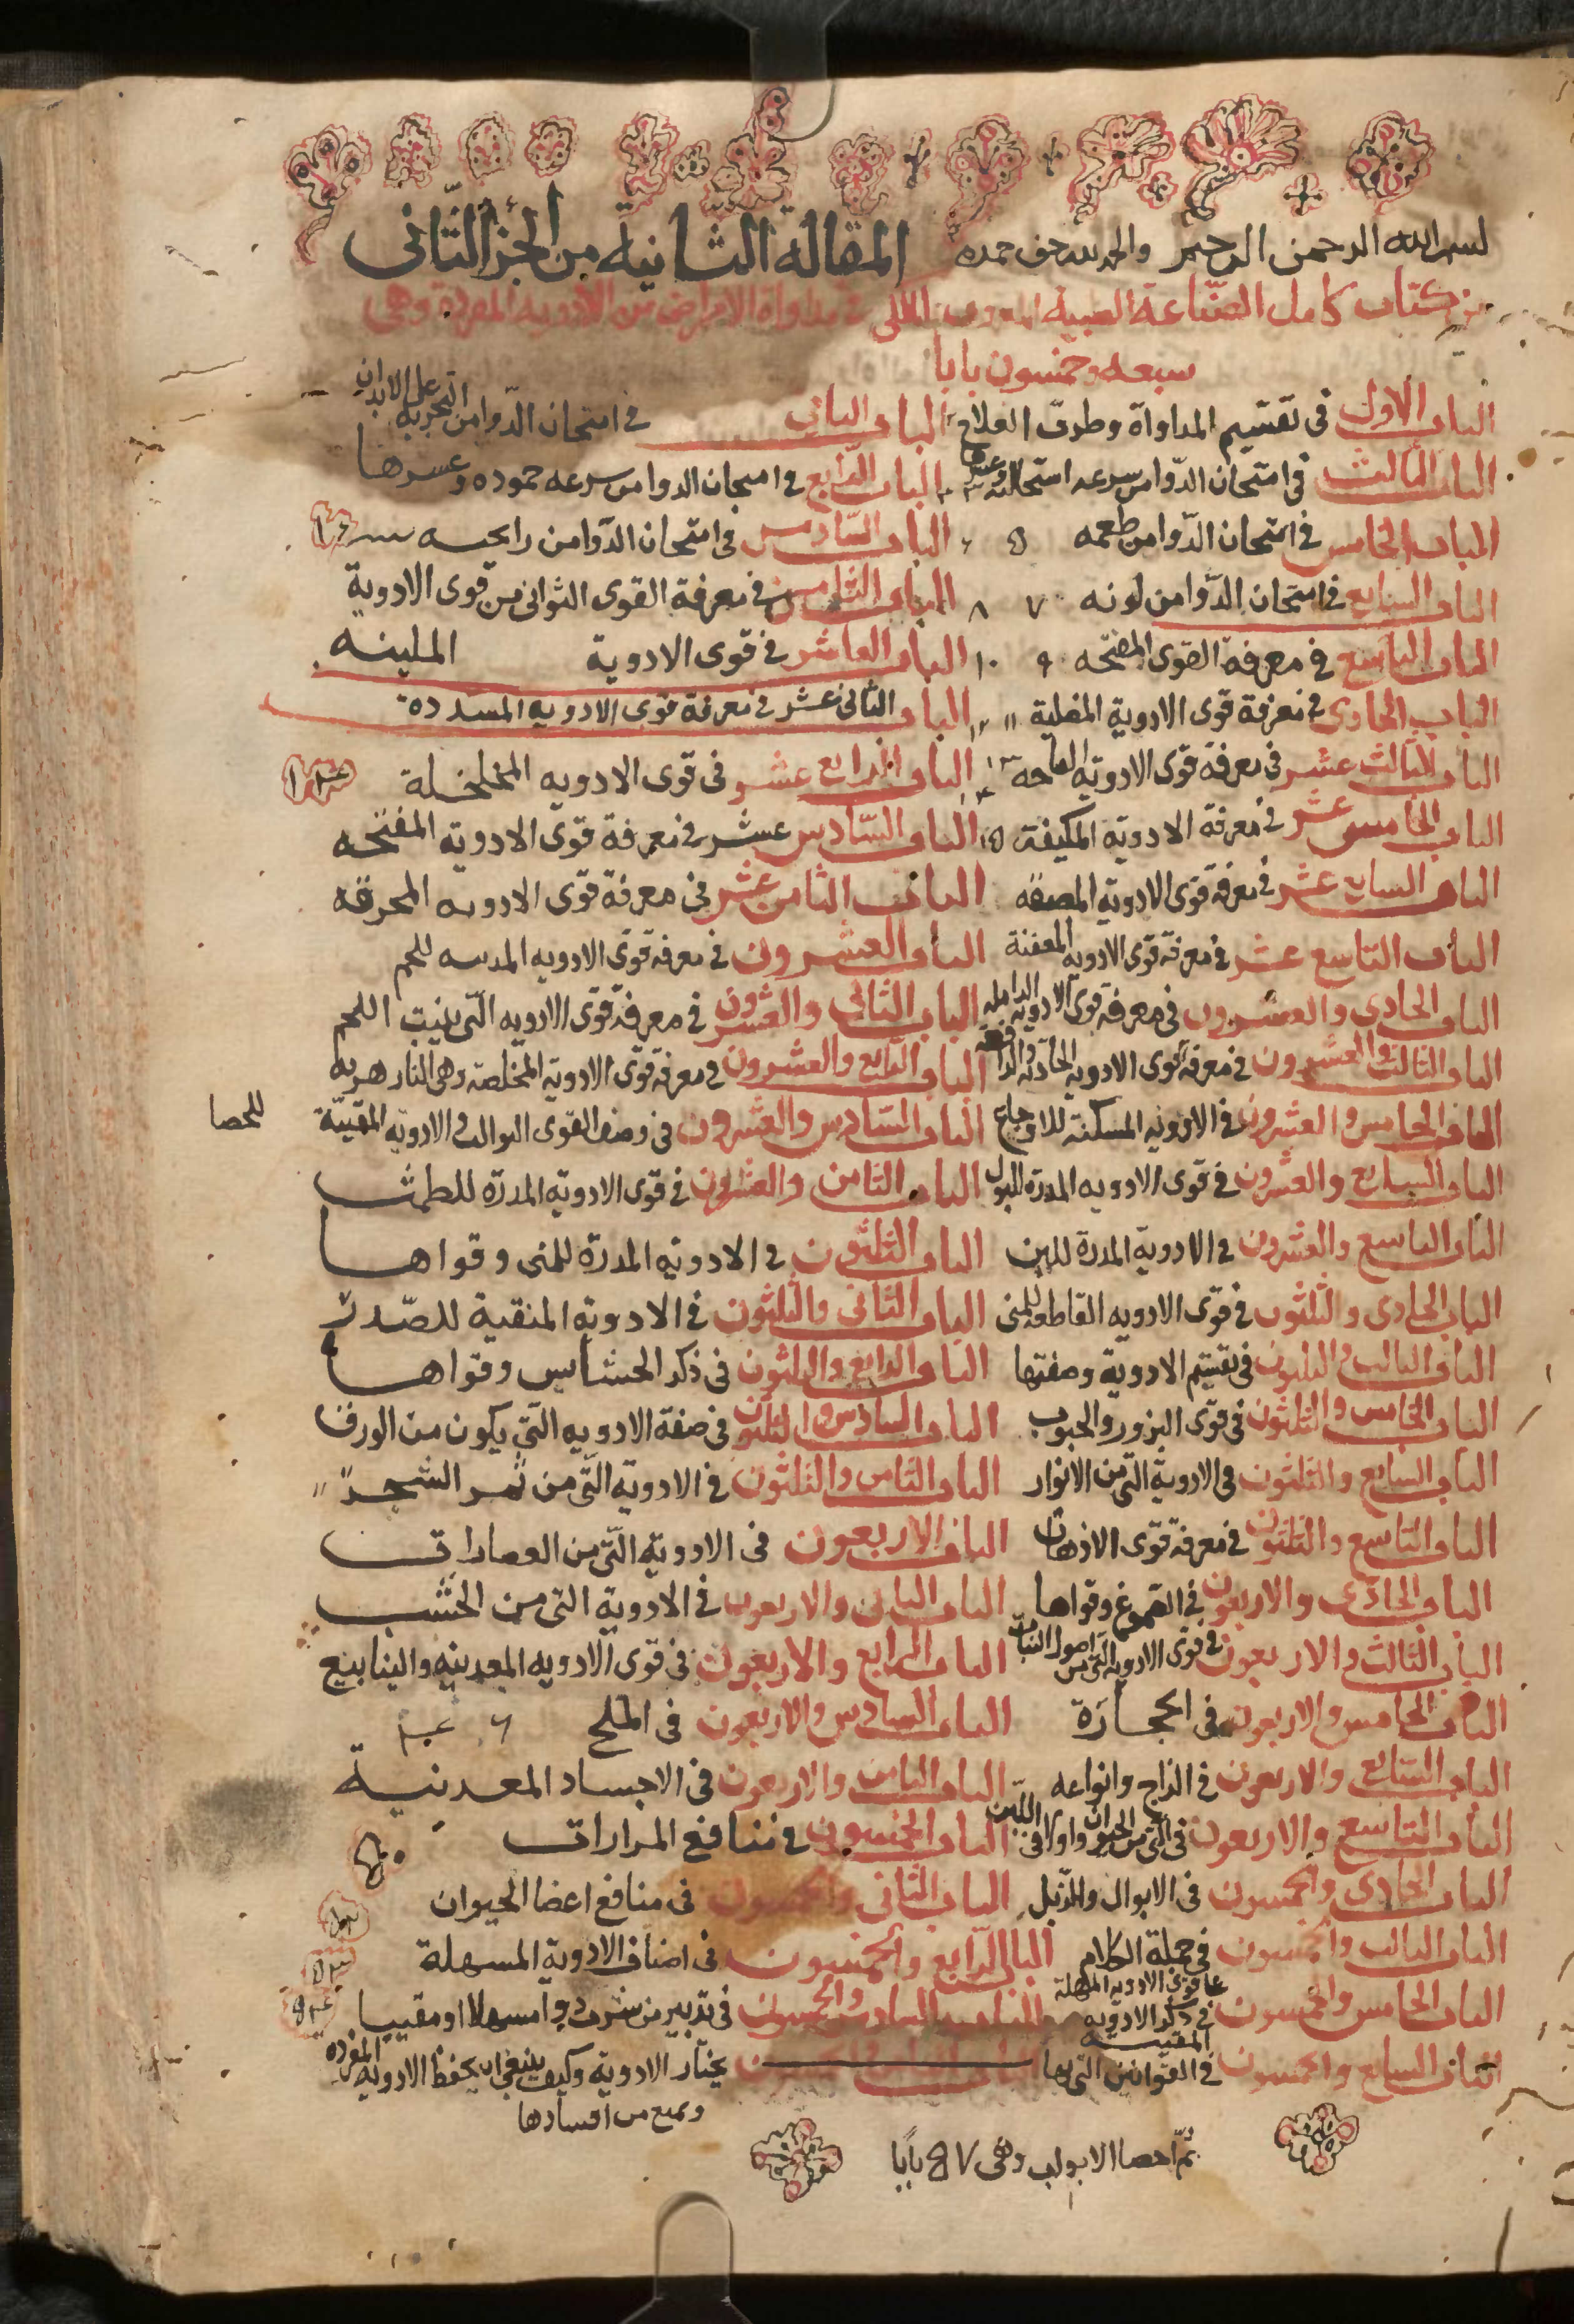 بسم الله الرحمن الرحيم والحمد لله حق حمده المقالة الثانية من الجزء الثانى
من كتاب كامل الصناعة الطبية المعروف بالملكى فى مداواة الامراض من الادويه المفردة وهى
سبعه وخمسون بابا
الباب الاول فى تقسيم المداواة وطرق العلاج الباب الثانى فى امتحان الدوا من التجربه على الابدان
الباب الثالث فى امتحان الدوا من سرعه استحالته وعسرها الباب الرابع فى امتحان الدوا من سرعه جموده وعسرها
الباب الخامس فى امتحان الدوا من طعمه ٥ ٦ الباب السادس فى امتحان الدوا من رايحته
الباب السابع فى امتحان الدوا من لونه ٧ ٨ الباب الثامن فى معرفة القوى الثوانى من قوى الادوية
الباب التاسع فى معرفة القوى المفتحه ٩ ١٠ الباب العاشر فى قوى الادوية الملينه
الباب الحادى فى معرفة قوى الادوية ١١ ١٢ الباب الثانى عشر فى معرفة قوى الادويه المسدده
الباب الثالث عشر فى معرفة قوى الادويه ١٣ ١٤ الباب الرابع عشر فى قوى الادويه المخلخلة
الباب الخامس عشر فى معرفة الادويه المكيفة ١٥ الباب السادس عشر فى معرفة قوى الادويه المفتحه
الباب السابع عشر فى معرفة قوى الادويه الباب الثامن عشر فى معرفة قوى الادويه المحرقه
الباب التاسع عشر فى معرفة قوى الادويه المعفنة الباب العشرون فى معرفة قوى الادويه للحم
الباب الحادى والعشرون فى معرفة قوى الادويه الداملة الباب الثانى والعشرون فى معرفة قوى الادويه التى ينبت اللحم
الباب الثالث والعشرون فى معرفة قوى الادويه الجاذبه والدافعة الباب الرابع والعشرون فى معرفة قوى الادوية المخلصة وهى
الباب الخامس والعشرون فى الادويه المسكنة للاوجاع الباب السادس والعشرون فى وصف القوى الثوالث والادويه المفتتة للحصا
الباب السابع والعشرون فى قوى الادويه المدرة للبول الباب الثامن والعشرون فى قوى الادوية المدرة للطمث
الباب التاسع والعشرون فى الادوية المدرة للبن الباب الثلثون فى الادويه المدرة للمنى وقواها
الباب الحادى والثلثون فى قوى الادويه القاطعه للمنى الباب الثانى والثلثون فى الادوية المنقية للصدر
الباب الثالث والثلثون فى تقسيم الادوية وصفتها الباب الرابع والثلثون فى ذكر الحشايش وقواها
الباب الخامس والثلثون فى قوى البزور والحبوب الباب السادس والثلثون فى صفة الادويه التى يكون من الورق
الباب السابع والثلثون فى الادوية التى من الانوار الباب الثامن والثلثون فى الادوية التى من ثمر الشجر
الباب التاسع والثلثون فى معرفة قوى الادهان الباب الاربعون فى الادوية التى من العصارات
الباب الحادى والاربعون فى الصموغ وقواها الباب الثانى والاربعون فى الادوية التى من الخشب
الباب الثالث والاربعون فى قوى الادويه التى من اصول النبات الباب الرابع والاربعون فى قوى الادويه المعدنيه والينابيع
الباب الخامس والاربعون فى الحجارة الباب السادس والاربعون فى الملح
الباب السابع والاربعون فى الزاج وانواعه الباب الثامن والاربعون فى الاجساد المعدنية
الباب التاسع والاربعون فى التى من الحيوان واولا فى اللبن الباب الخمسون فى منافع المرارات ٥٠
الباب الحادى والخمسون فى الابوال والزبل الباب الثانى والخمسون فى منافع اعضا الحيوان
الباب الثالث والخمسون فى جملة الكلام على قوى الادويه المسهلة الباب الرابع والخمسون فى اصناف الادوية المسهلة
الباب الخامس والخمسون فى ذكر الادويه المقيية الباب السادس والخمسون فى تدبير من شرب دوا مسهلا او مقييا
الباب السابع والخمسون فى القوانين التى بها يختار الادوية وكيف ينبغى ان يحفظ الادويه المفرده
ويمنع من افسادها
تم احصا الابواب وهى ٥٧ بابا